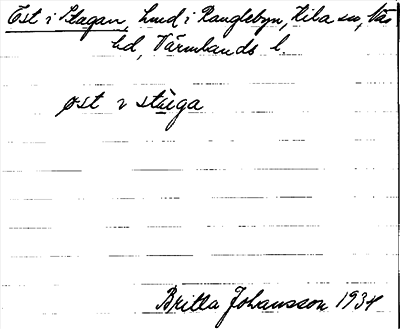 Öst i Stagan, hmd i Ranglebyn, Kila sn, Näs
hd, Värmlands l.
øst ı stäiga
Britta Johansson 1934